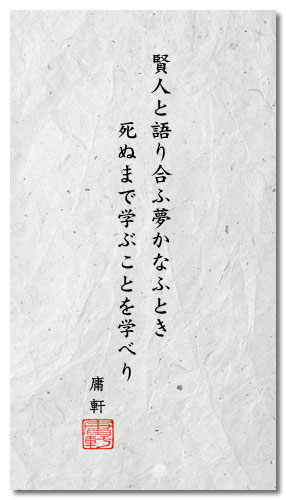 賢人と語り合ふ夢かなふとき
死ぬまで学ぶことを学べり
庸軒
庸軒